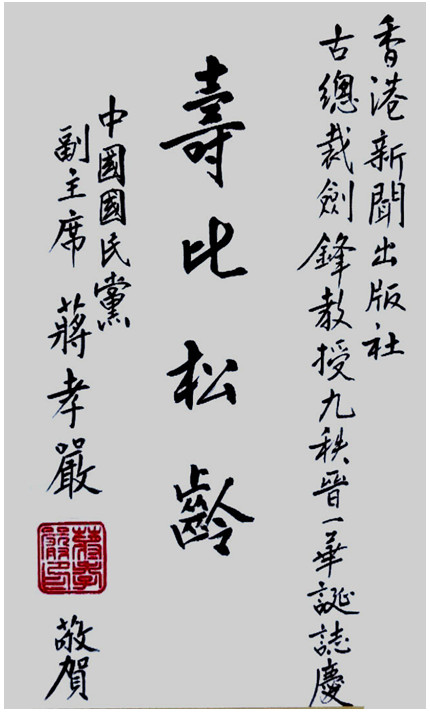 香港新聞出版社
古總裁劍鋒教授九秩晉一華誕誌慶
壽比松齡
中國國民黨
副主席 蔣孝嚴 敬賀
蔣孝嚴印